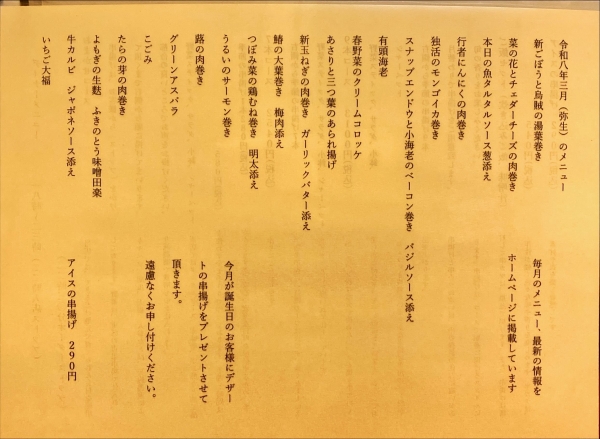 令和八年三月（弥生）のメニュー
新ごぼうと烏賊の湯葉巻き
菜の花とチェダーチーズの肉巻き
本日の魚タルタルソース葱添え
行者にんにくの肉巻き
独活のモンゴイカ巻き
スナップエンドウと小海老のベーコン巻き　バジルソース添え
有頭海老
春野菜のクリームコロッケ
あさりと三つ葉のあられ揚げ
新玉ねぎの肉巻き　ガーリックバター添え
鰆の大葉巻き　梅肉添え
つぼみ菜の鶏むね巻き　明太添え
うるいのサーモン巻き
蕗の肉巻き
グリーンアスパラ
こごみ
たらの芽の肉巻き
よもぎの生麩　ふきのとう味噌田楽
牛カルビ　ジャポネソース添え
いちご大福
毎月のメニュー、最新の情報を
ホームページに掲載しています
今月が誕生日のお客様にデザー
トの串揚げをプレゼントさせて
頂きます。
遠慮なくお申し付けください。
アイスの串揚げ　290円